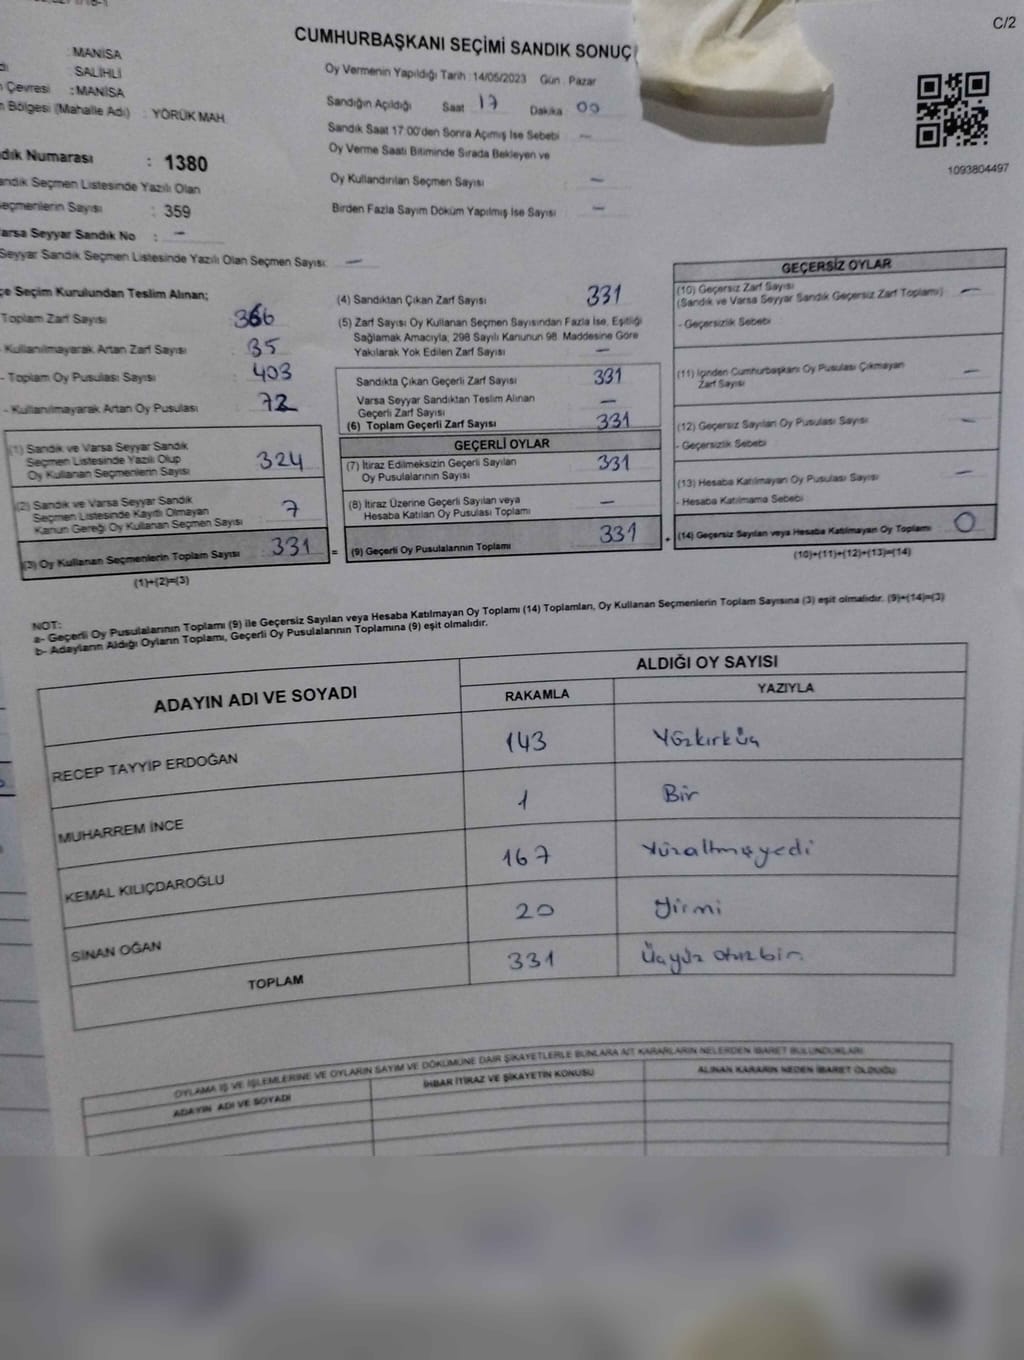 C/2
CUMHURBAŞKANI SEÇİMİ SANDIK SONUÇ
: MANİSA
: SALİHLİ
Çevresi : MANİSA
Bölgesi (Mahalle Adı) : YÖRÜK MAH.
Oy Vermenin Yapıldığı Tarih : 14/05/2023 Gün : Pazar
Sandığın Açıldığı Saat 17 Dakika 00
Sandık Saat 17:00'den Sonra Açımış İse Sebebi —
Oy Verme Saati Bitiminde Sırada Bekleyen ve
Oy Kullandırılan Seçmen Sayısı —
Birden Fazla Sayım Döküm Yapılmış İse Sayısı —
1093804497
Numarası : 1380
Seçmen Listesinde Yazılı Olan
Sayısı : 359
Seyyar Sandık No : —
Seyyar Sandık Seçmen Listesinde Yazılı Olan Seçmen Sayısı: —
Seçim Kurulundan Teslim Alınan;
Toplam Zarf Sayısı 366
- Kullanılmayarak Artan Zarf Sayısı : 35
- Toplam Oy Pusulası Sayısı : 403
- Kullanılmayarak Artan Oy Pusulası : 72
(1) Sandık ve Varsa Seyyar Sandık
Seçmen Listesinde Yazılı Olup
Oy Kullanan Seçmenlerin Sayısı 324
(2) Sandık ve Varsa Seyyar Sandık
Seçmen Listesinde Kayıtlı Olmayan
Kanun Gereği Oy Kullanan Seçmen Sayısı 7
(3) Oy Kullanan Seçmenlerin Toplam Sayısı 331
(1)+(2)=(3)
(4) Sandıktan Çıkan Zarf Sayısı 331
(5) Zarf Sayısı Oy Kullanan Seçmen Sayısından Fazla İse, Eşitliği
Sağlamak Amacıyla; 298 Sayılı Kanunun 98. Maddesine Göre
Yakılarak Yok Edilen Zarf Sayısı —
Sandıkta Çıkan Geçerli Zarf Sayısı 331
Varsa Seyyar Sandıktan Teslim Alınan
Geçerli Zarf Sayısı —
(6) Toplam Geçerli Zarf Sayısı 331
GEÇERLİ OYLAR
(7) İtiraz Edilmeksizin Geçerli Sayılan
Oy Pusulalarının Sayısı 331
(8) İtiraz Üzerine Geçerli Sayılan veya
Hesaba Katılan Oy Pusulası Toplamı —
= (9) Geçerli Oy Pusulalarının Toplamı 331 +
GEÇERSİZ OYLAR
(10) Geçersiz Zarf Sayısı
(Sandık ve Varsa Seyyar Sandık Geçersiz Zarf Toplamı) —
- Geçersizlik Sebebi
(11) İçinden Cumhurbaşkanı Oy Pusulası Çıkmayan
Zarf Sayısı —
(12) Geçersiz Sayılan Oy Pusulası Sayısı —
- Geçersizlik Sebebi
(13) Hesaba Katılmayan Oy Pusulası Sayısı —
- Hesaba Katılmama Sebebi
(14) Geçersiz Sayılan veya Hesaba Katılmayan Oy Toplamı 0
(10)+(11)+(12)+(13)=(14)
NOT:
a- Geçerli Oy Pusulalarının Toplamı (9) ile Geçersiz Sayılan veya Hesaba Katılmayan Oy Toplamı (14) Toplamları, Oy Kullanan Seçmenlerin Toplam Sayısına (3) eşit olmalıdır. (9)+(14)=(3)
b- Adayların Aldığı Oyların Toplamı, Geçerli Oy Pusulalarının Toplamına (9) eşit olmalıdır.
ADAYIN ADI VE SOYADI
ALDIĞI OY SAYISI
RAKAMLA YAZIYLA
RECEP TAYYİP ERDOĞAN 143 Yüzkırküç
MUHARREM İNCE 1 Bir
KEMAL KILIÇDAROĞLU 167 Yüzaltmışyedi
SİNAN OĞAN 20 Yirmi
TOPLAM 331 Üçyüz otuzbir
OYLAMA İŞ VE İŞLEMLERİNE VE OYLARIN SAYIM VE DÖKÜMÜNE DAİR ŞİKAYETLERLE BUNLARA AİT KARARLARIN NELERDEN İBARET BULUNDUKLARI
ADAYIN ADI VE SOYADI
İHBAR İTİRAZ VE ŞİKAYETİN KONUSU
ALINAN KARARIN NEDEN İBARET OLDUĞU